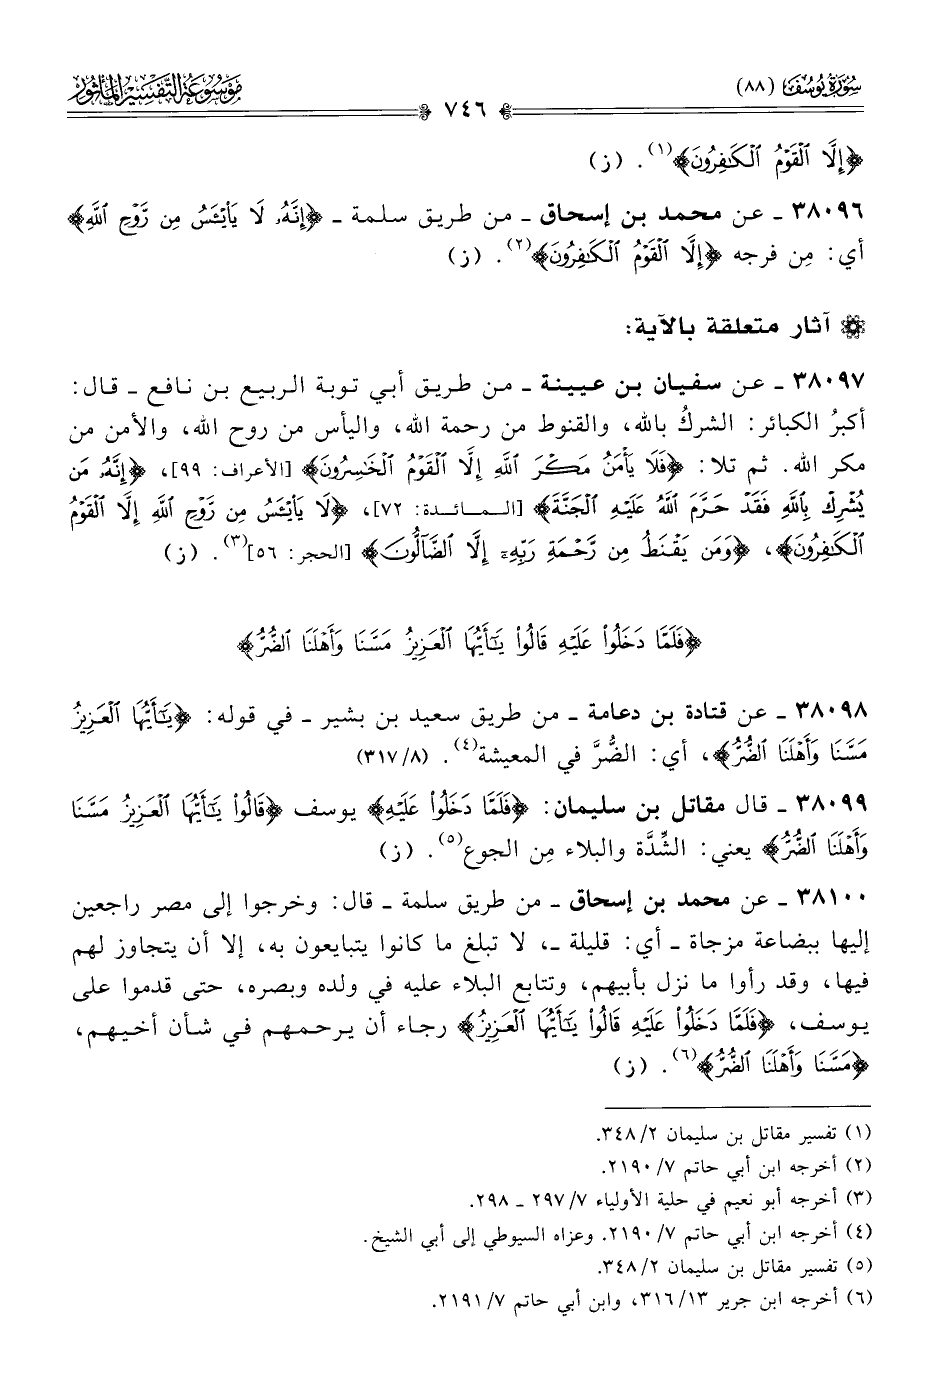 سُورَةُ يُوسُفَ (٨٨)
٧٤٦
مَوْسُوعَةُ التَّفْسِيرِ المَأْثُور
﴿إِلَّا ٱلْقَوْمُ ٱلْكَـٰفِرُونَ﴾(١). (ز)
٣٨٠٩٦ ـ عن محمد بن إسحاق ـ من طريق سلمة ـ ﴿إِنَّهُۥ لَا يَا۟يْـَٔسُ مِن رَّوْحِ ٱللَّهِ﴾
أي: مِن فرجه ﴿إِلَّا ٱلْقَوْمُ ٱلْكَـٰفِرُونَ﴾(٢). (ز)
آثار متعلقة بالآية:
٣٨٠٩٧ ـ عن سفيان بن عيينة ـ من طريق أبي توبة الربيع بن نافع ـ قال:
أكبرُ الكبائر: الشركُ بالله، والقنوط من رحمة الله، واليأس من روح الله، والأمن من
مكر الله. ثم تلا: ﴿فَلَا يَأْمَنُ مَكْرَ ٱللَّهِ إِلَّا ٱلْقَوْمُ ٱلْخَـٰسِرُونَ﴾ [الأعراف: ٩٩]، ﴿إِنَّهُۥ مَن
يُشْرِكْ بِٱللَّهِ فَقَدْ حَرَّمَ ٱللَّهُ عَلَيْهِ ٱلْجَنَّةَ﴾ [المائدة: ٧٢]، ﴿لَا يَا۟يْـَٔسُ مِن رَّوْحِ ٱللَّهِ إِلَّا ٱلْقَوْمُ
ٱلْكَـٰفِرُونَ﴾، ﴿وَمَن يَقْنَطُ مِن رَّحْمَةِ رَبِّهِۦٓ إِلَّا ٱلضَّآلُّونَ﴾ [الحجر: ٥٦](٣). (ز)
﴿فَلَمَّا دَخَلُوا۟ عَلَيْهِ قَالُوا۟ يَـٰٓأَيُّهَا ٱلْعَزِيزُ مَسَّنَا وَأَهْلَنَا ٱلضُّرُّ﴾
٣٨٠٩٨ ـ عن قتادة بن دعامة ـ من طريق سعيد بن بشير ـ في قوله: ﴿يَـٰٓأَيُّهَا ٱلْعَزِيزُ
مَسَّنَا وَأَهْلَنَا ٱلضُّرُّ﴾، أي: الضُّرَّ في المعيشة(٤). (٨/٣١٧)
٣٨٠٩٩ ـ قال مقاتل بن سليمان: ﴿فَلَمَّا دَخَلُوا۟ عَلَيْهِ﴾ يوسف ﴿قَالُوا۟ يَـٰٓأَيُّهَا ٱلْعَزِيزُ مَسَّنَا
وَأَهْلَنَا ٱلضُّرُّ﴾ يعني: الشِّدَّة والبلاء مِن الجوع(٥). (ز)
٣٨١٠٠ ـ عن محمد بن إسحاق ـ من طريق سلمة ـ قال: وخرجوا إلى مصر راجعين
إليها ببضاعة مزجاة ـ أي: قليلة ـ، لا تبلغ ما كانوا يتبايعون به، إلا أن يتجاوز لهم
فيها، وقد رأوا ما نزل بأبيهم، وتتابع البلاء عليه في ولده وبصره، حتى قدموا على
يوسف، ﴿فَلَمَّا دَخَلُوا۟ عَلَيْهِ قَالُوا۟ يَـٰٓأَيُّهَا ٱلْعَزِيزُ﴾ رجاء أن يرحمهم في شأن أخيهم،
﴿مَسَّنَا وَأَهْلَنَا ٱلضُّرُّ﴾(٦). (ز)
(١) تفسير مقاتل بن سليمان ٢/٣٤٨.
(٢) أخرجه ابن أبي حاتم ٧/٢١٩٠.
(٣) أخرجه أبو نعيم في حلية الأولياء ٧/٢٩٧ ـ ٢٩٨.
(٤) أخرجه ابن أبي حاتم ٧/٢١٩٠. وعزاه السيوطي إلى أبي الشيخ.
(٥) تفسير مقاتل بن سليمان ٢/٣٤٨.
(٦) أخرجه ابن جرير ١٣/٣١٦، وابن أبي حاتم ٧/٢١٩١.